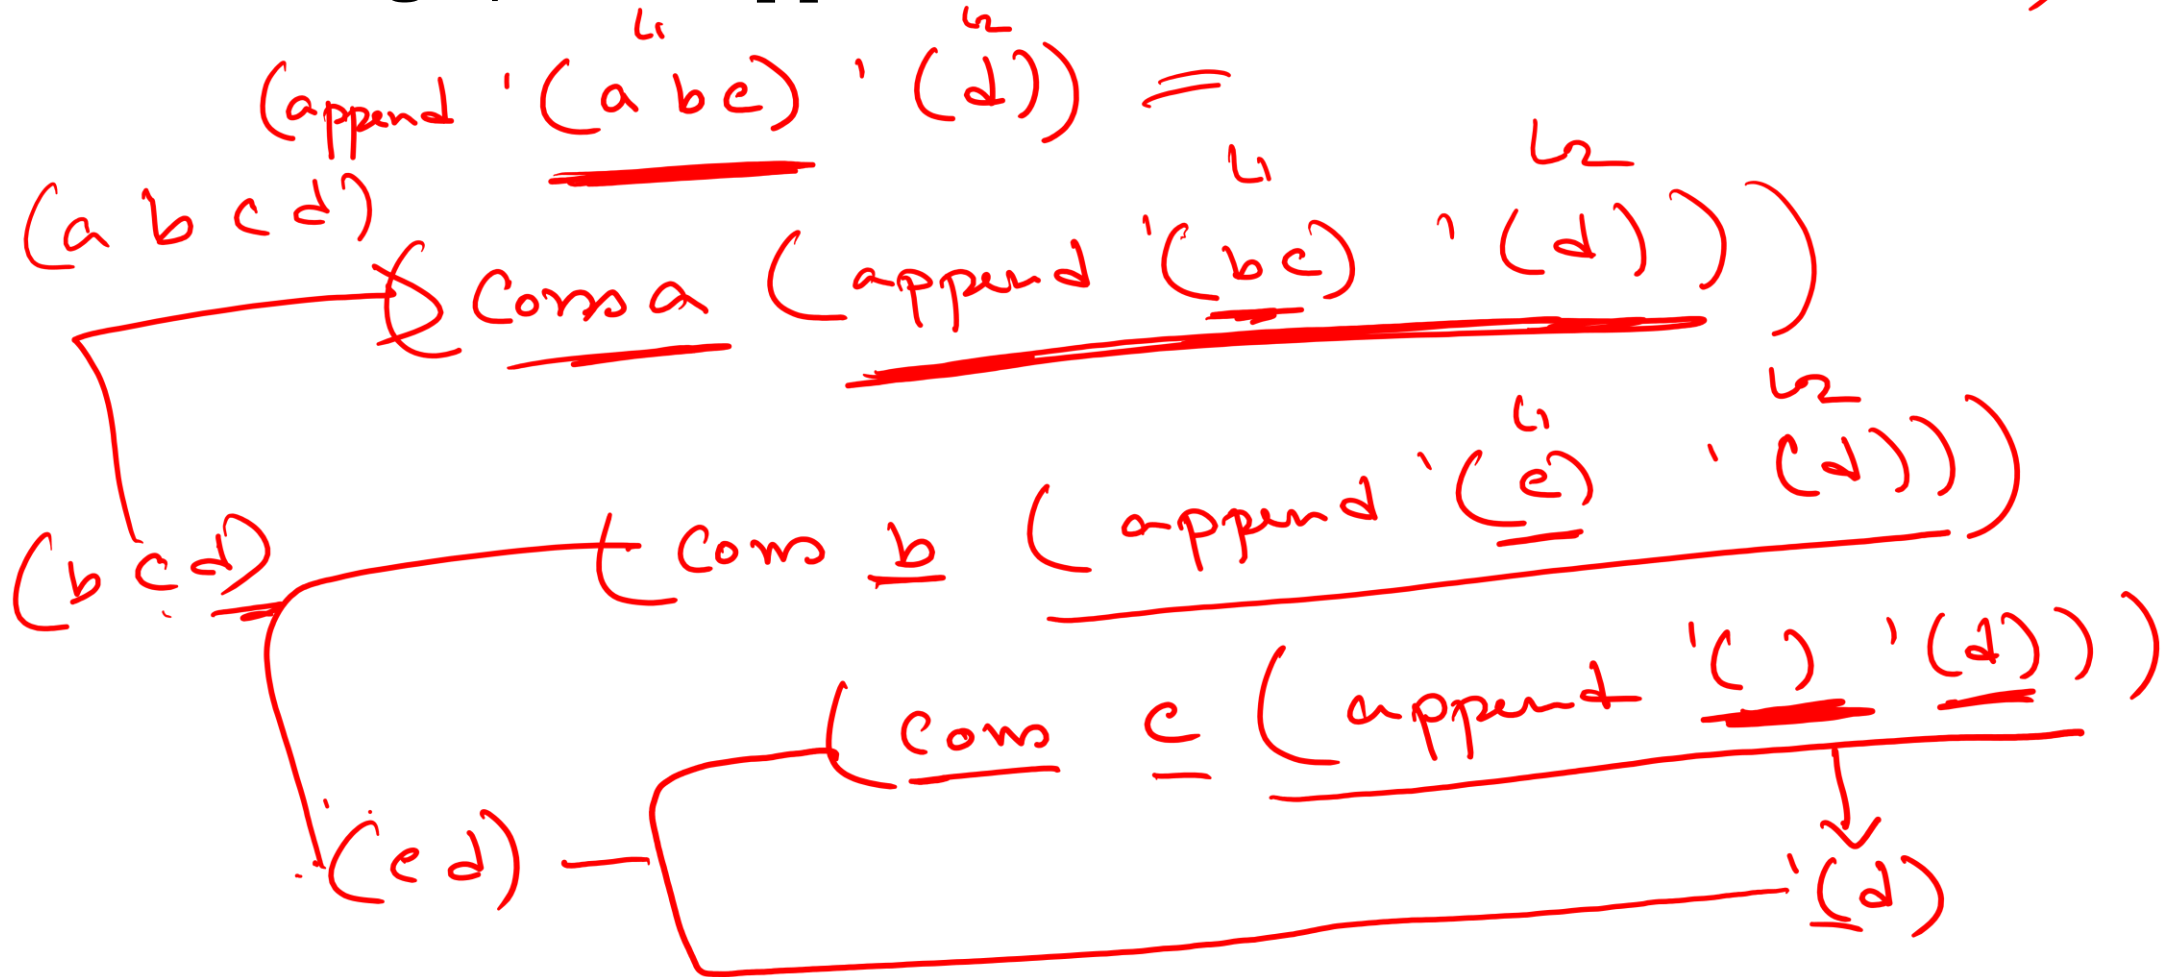 L1 L2
(append '(a b c) '(d)) =
L1 L2
(a b c d)
(cons a (append '(b c) '(d))))
L1 L2
(b c d) (cons b (append '(c) '(d))))
(cons c (append '() '(d))))
'(c d) '(d)